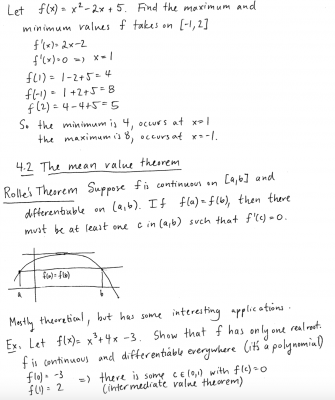 Let f(x) = x² - 2x + 5. Find the maximum and
minimum values f takes on [-1,2]
f'(x) = 2x - 2
f'(x) = 0 => x = 1
f(1) = 1 - 2 + 5 = 4
f(-1) = 1 + 2 + 5 = 8
f(2) = 4 - 4 + 5 = 5
So the minimum is 4, occurs at x = 1
the maximum is 8, occurs at x = -1.
4.2 The mean value theorem
Rolle's Theorem Suppose f is continuous on [a,b] and
differentiable on (a,b). If f(a) = f(b), then there
must be at least one c in (a,b) such that f'(c) = 0.
f(a) = f(b)
a b
Mostly theoretical, but has some interesting applications.
Ex: Let f(x) = x³ + 4x - 3. Show that f has only one real root.
f is continuous and differentiable everywhere (it's a polynomial)
f(0) = -3 => there is some c ∈ (0,1) with f(c) = 0
f(1) = 2 (intermediate value theorem)